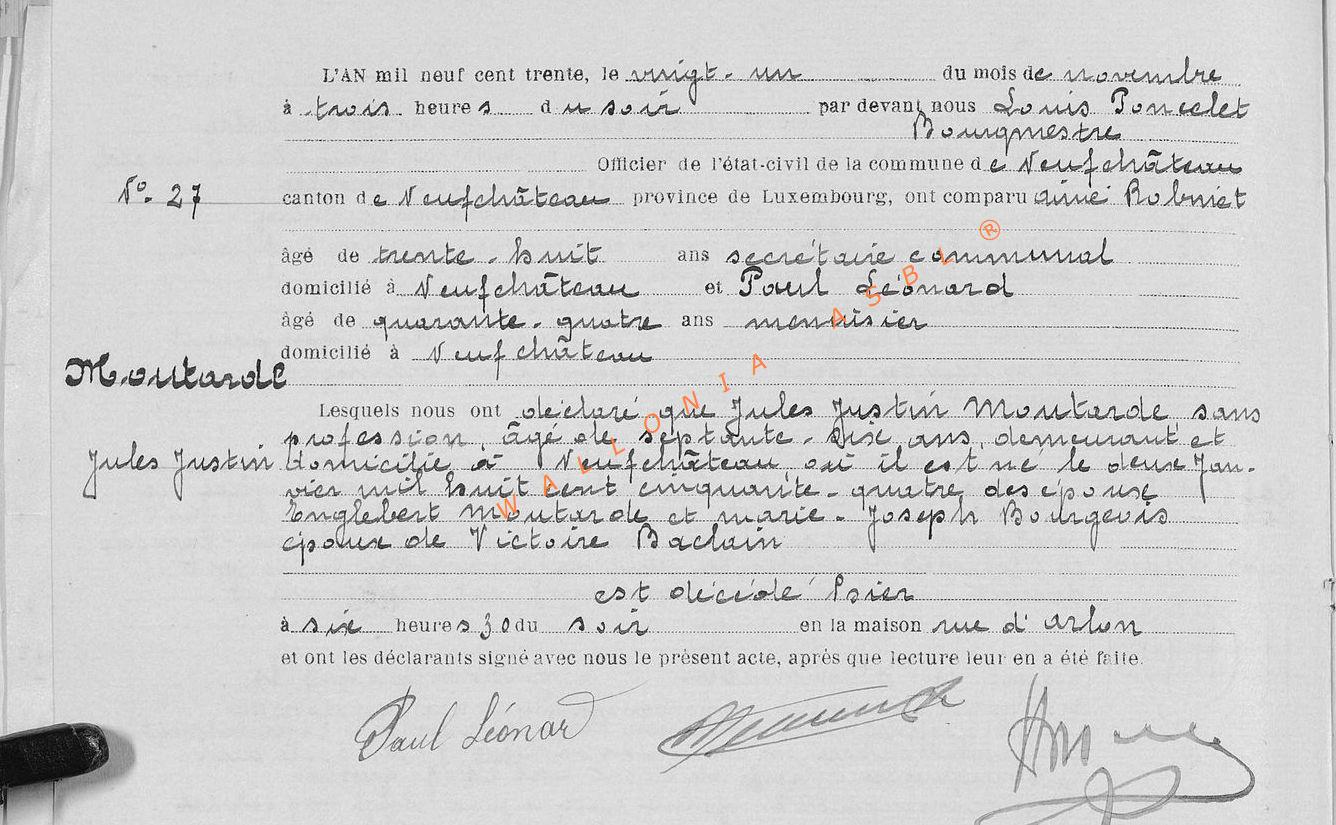 L'AN mil neuf cent trente, le vingt-un du mois de novembre
à trois heures du soir par devant nous Louis Poncelet
Bourgmestre
Officier de l'état-civil de la commune de Neufchâteau
N° 27
canton de Neufchâteau province de Luxembourg, ont comparu aimé
âgé de trente-huit ans secrétaire communal
domicilié à Neufchâteau et Paul Léonard
âgé de quarante-quatre ans menuisier
domicilié à Neufchâteau
Moutarde
Lesquels nous ont déclaré que Jules Justin Moutarde sans
profession, âgé de septante-six ans, demeurant et
Jules Justin
domicilié à Neufchâteau où il est né le deux Jan-
vier mil huit cent cinquante-quatre des époux
Englebert Moutarde et marie-Joseph Bourgeois
époux de Victoire Baclain
est décédé hier
à six heures 30 du soir en la maison rue d'Arlon
et ont les déclarants signé avec nous le présent acte, après que lecture leur en a été faite.
Paul Léonard
WALLONIA ASBL ®